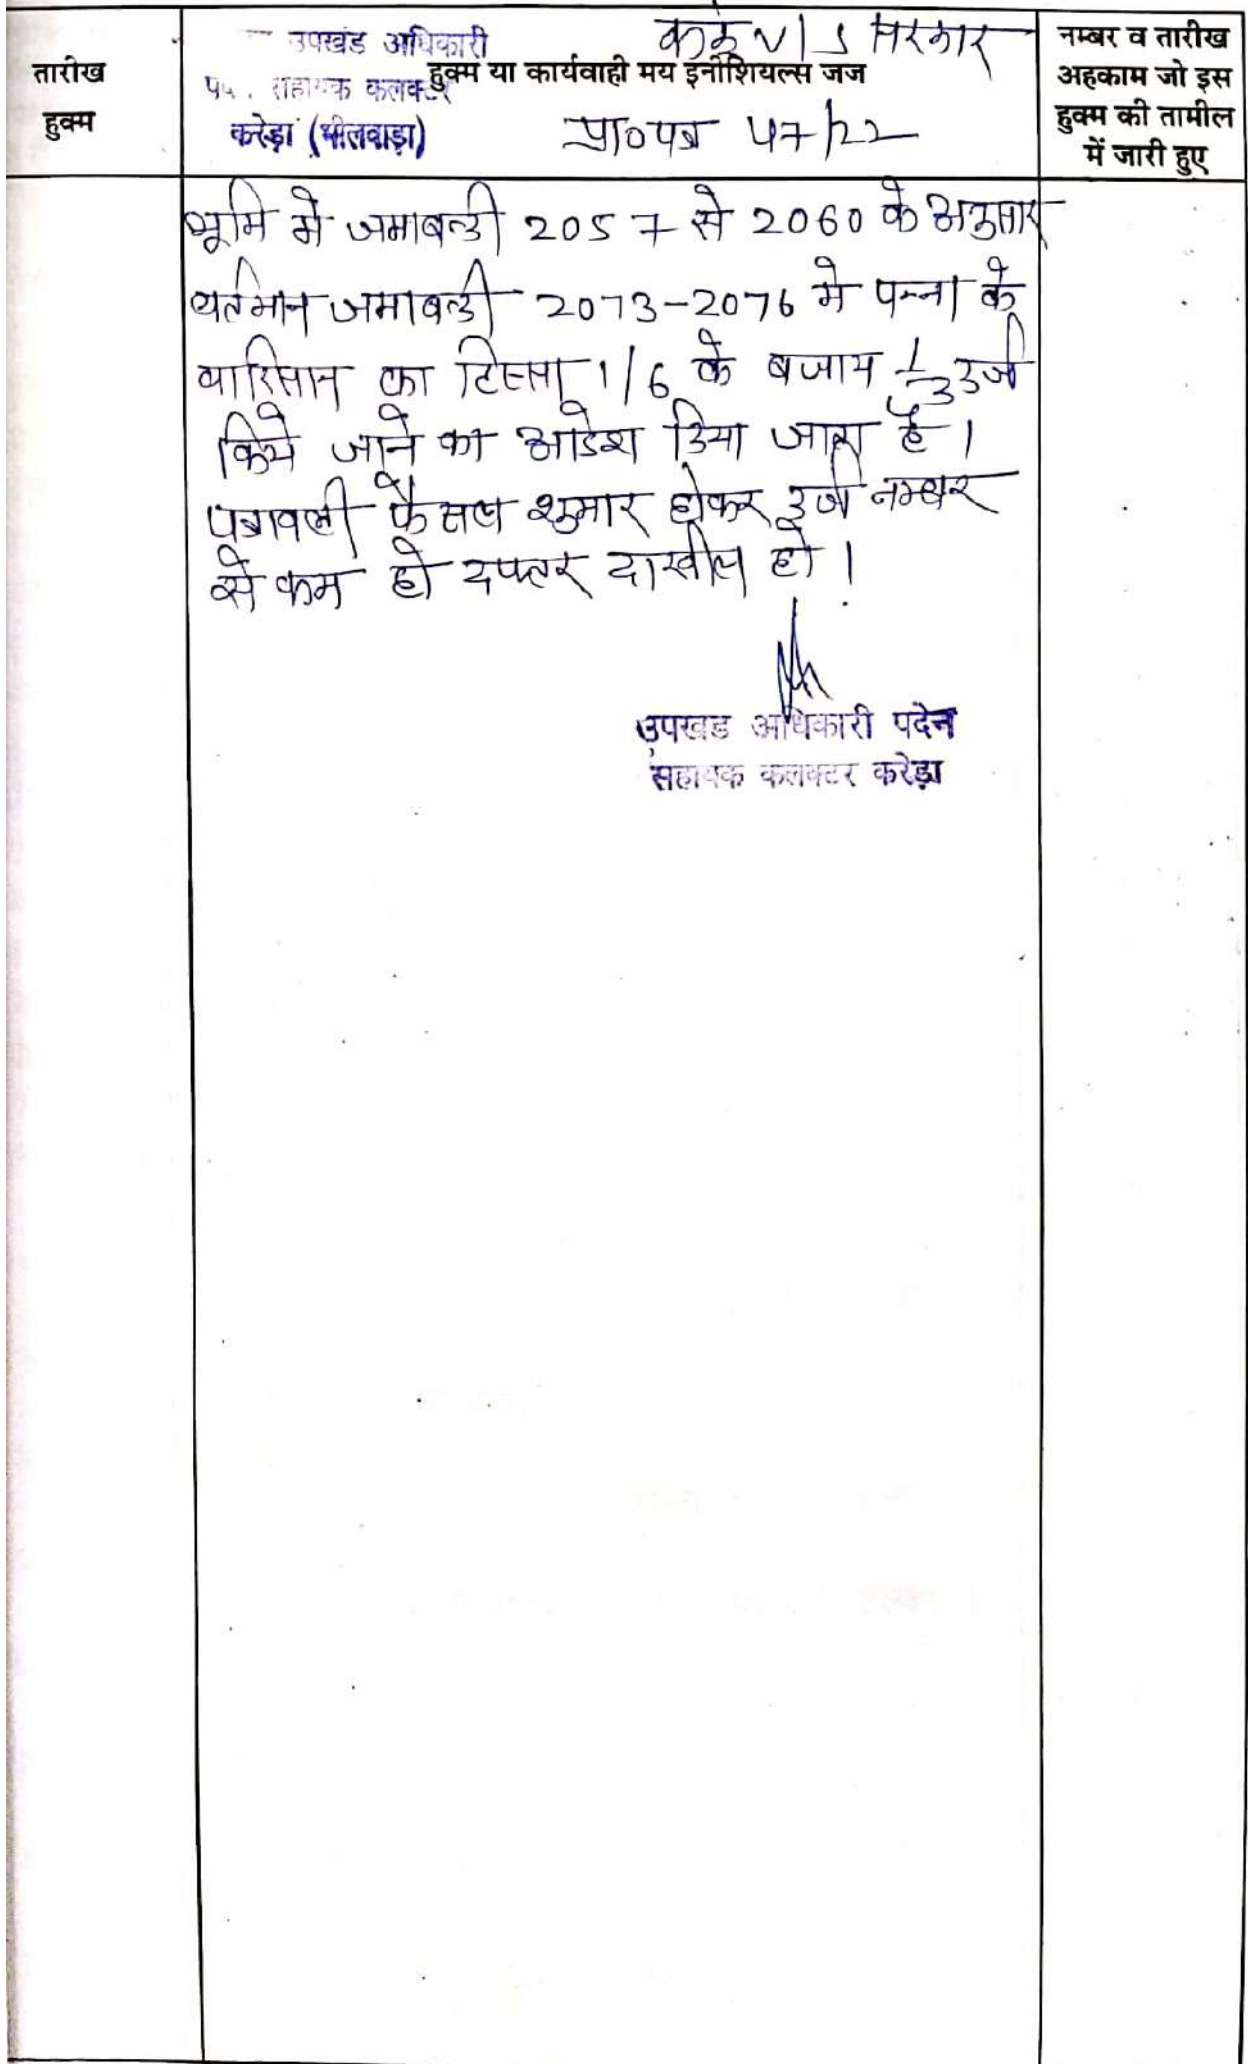 तारीख
हुक्म
उपखंड अधिकारी
सहायक कलक्टर
करेड़ा (भीलवाड़ा)
V/S सरकार
हुक्म या कार्यवाही मय इनीशियल्स जज
प्रा०पत्र 47/22
नम्बर व तारीख
अहकाम जो इस
हुक्म की तामील
में जारी हुए
भूमि मे जमाबन्दी 2057 से 2060 के अनुसार
वर्तमान जमाबन्दी 2073-2076 मे पन्ना के
वारिसान का हिस्सा 1/6 के बजाय 1/3 दर्ज
किये जाने का आदेश दिया जाता है।
पत्रावली फैसल शुमार होकर दर्ज नम्बर
से कम हो दफ्तर दाखील हो।
उपखंड अधिकारी पदेन
सहायक कलक्टर करेड़ा